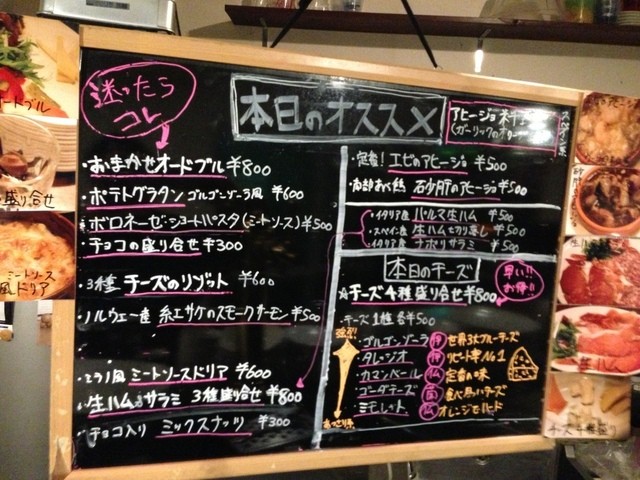 迷ったら
コレ
本日のオススメ
アヒージョ
(ガーリックのオ
・おまかせオードブル ¥800
・ポテトグラタン ゴルゴンゾーラ風 ¥600
・ボロネーゼ・ショートパスタ(ミートソース)¥500
・チョコの盛り合せ ¥300
・3種 チーズのリゾット ¥600
・ノルウェー産 紅サケのスモークサーモン ¥500
・ミラノ風 ミートソースドリア ¥600
・生ハム、サラミ 3種盛り合せ ¥800
・チョコ入り ミックスナッツ ¥300
・定番! エビのアヒージョ ¥500
砂肝のアヒージョ ¥500
・イタリア産 パルマ生ハム ¥500
・スペイン産 生ハム切り落し ¥500
・イタリア産 ナポリサラミ ¥500
本日のチーズ
早い!!
お得!!
☆チーズ4種盛り合せ ¥800
・チーズ1種 各¥500
濃厚!
・ゴルゴンゾーラ 伊 世界3大ブルーチーズ
・タレッジオ 伊 リピート率No.1
・カマンベール 仏 定番の味
・ゴーダチーズ 蘭
・ミモレット 仏 オレンジ
あっさり
オードブル
盛り合せ
ミートソース
風ドリア
チーズ4種盛り